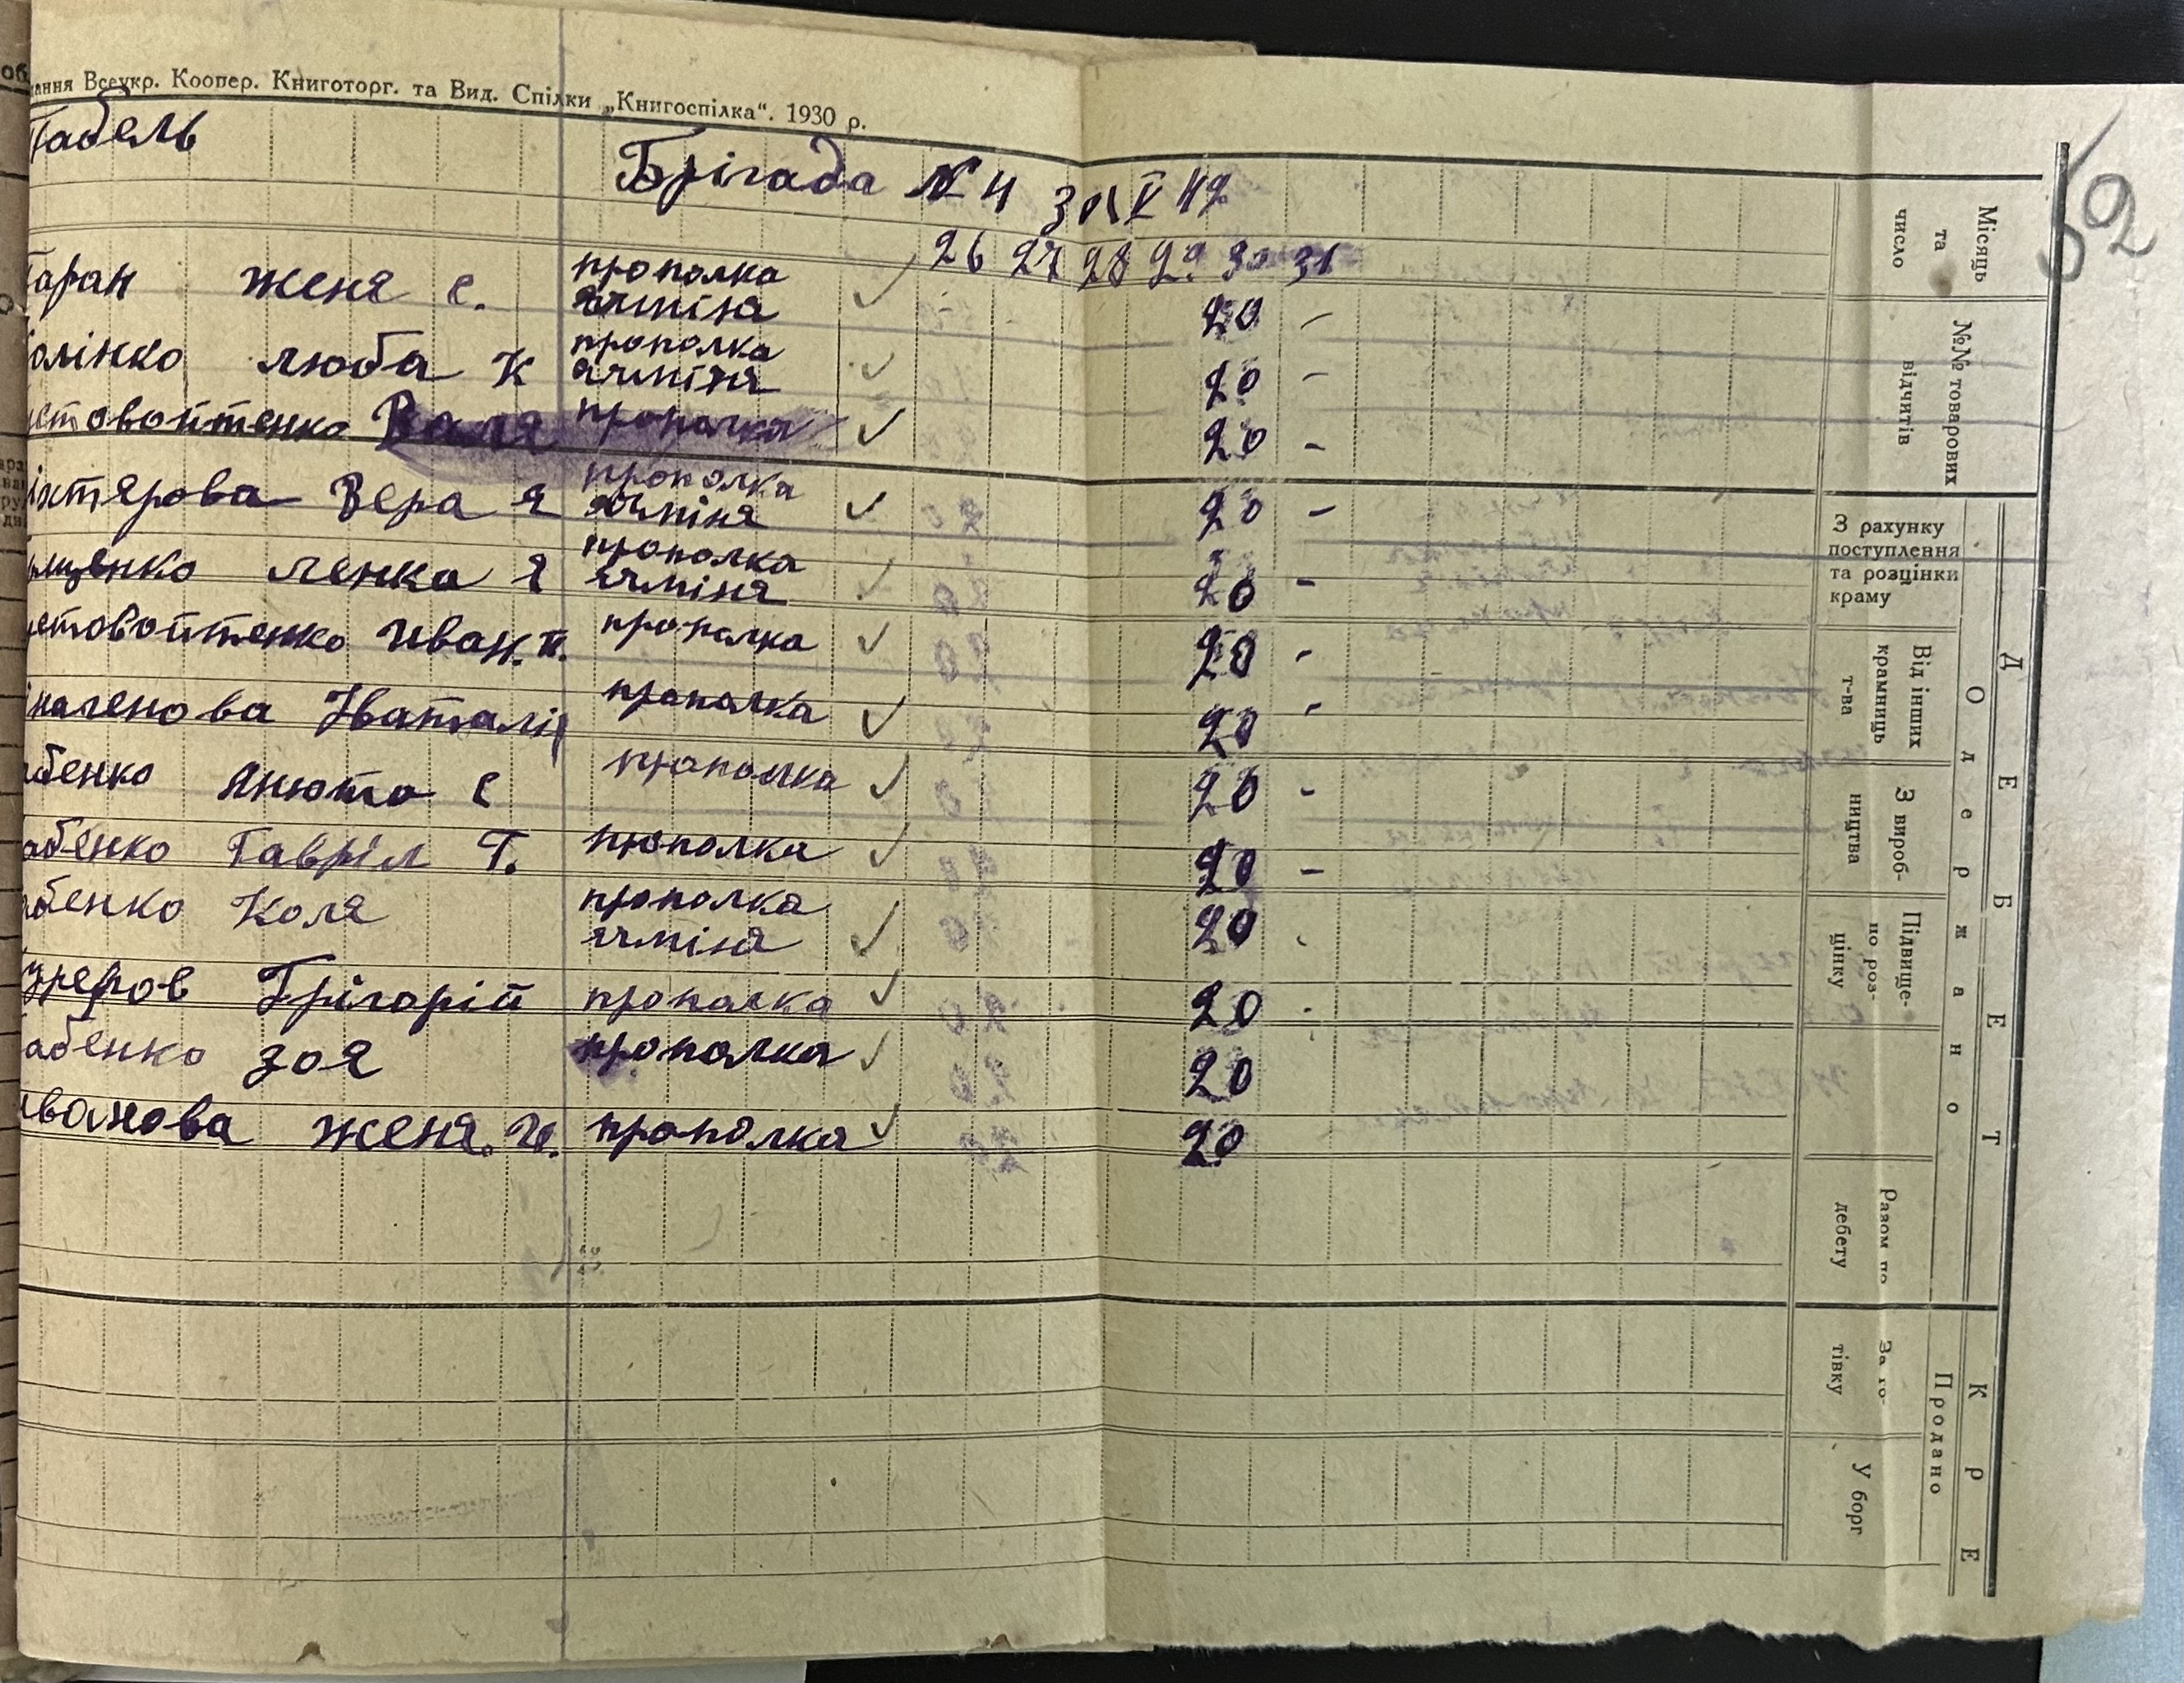 ання Всеукр. Коопер. Книготорг. та Вид. Спілки „Книгоспілка“. 1930 р.
Табель
Брігада № 4 за V 42
52
26 27 28 29 30 31
Таран женя є. прополка
ячміня 20 -
олінко люба К прополка
ячміня 20 -
стовойтенко Валя прополка 20 -
іхтярова Вера я прополка
ячміня 20 -
ленка я прополка
ячміня 20 -
устовойтенко иван. п. прополка 20 -
Наталія прополка 20 -
абенко Анюта є прополка 20 -
абенко Гавріл Т. прополка 20 -
абенко Коля прополка
ячміня 20
Грігорій прополка 20
абенко зоя прополка 20
иванова женя. И. прополка 20
Місяць
та
число
№№ товарових
відчитів
ДЕБЕТ
Одержано
З рахунку
поступлення
та розцінки
краму
Від інших
крамниць
т-ва
З вироб-
ництва
Підвище-
по роз-
цінку
Разом по
дебету
КРЕ
Продано
За го-
тівку
У борг